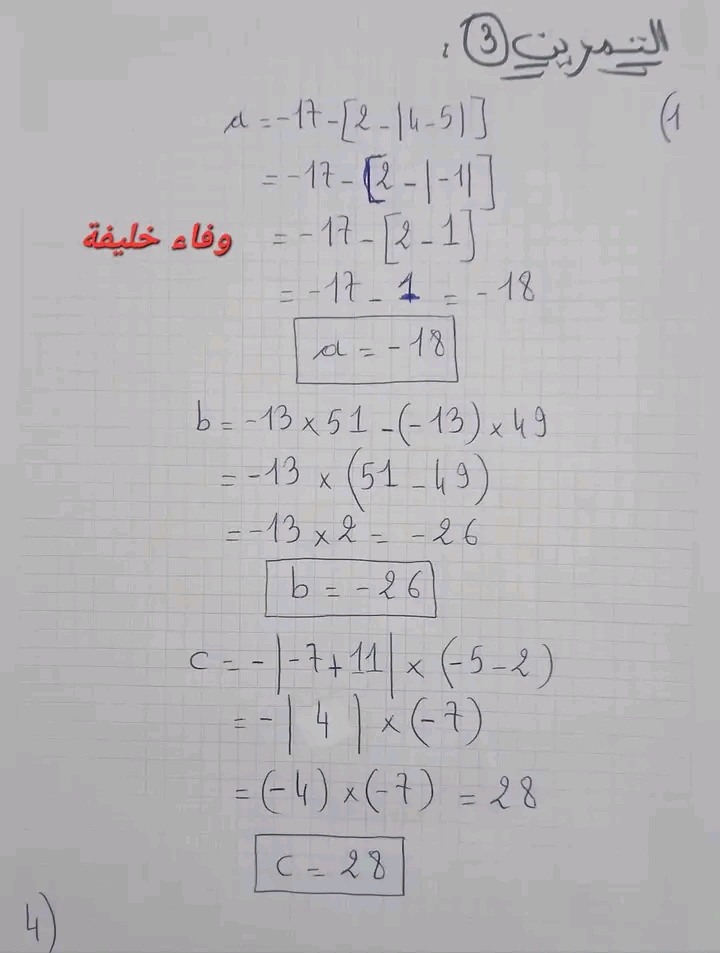 التمرين ③ :
1) a = -17 - [2 - |4 - 5|]
= -17 - [2 - |-1|]
= -17 - [2 - 1]
وفاء خليفة
= -17 - 1 = -18
a = -18
b = -13 × 51 - (-13) × 49
= -13 × (51 - 49)
= -13 × 2 = -26
b = -26
c = -|-7 + 11| × (-5 - 2)
= -| 4 | × (-7)
= (-4) × (-7) = 28
c = 28
4)